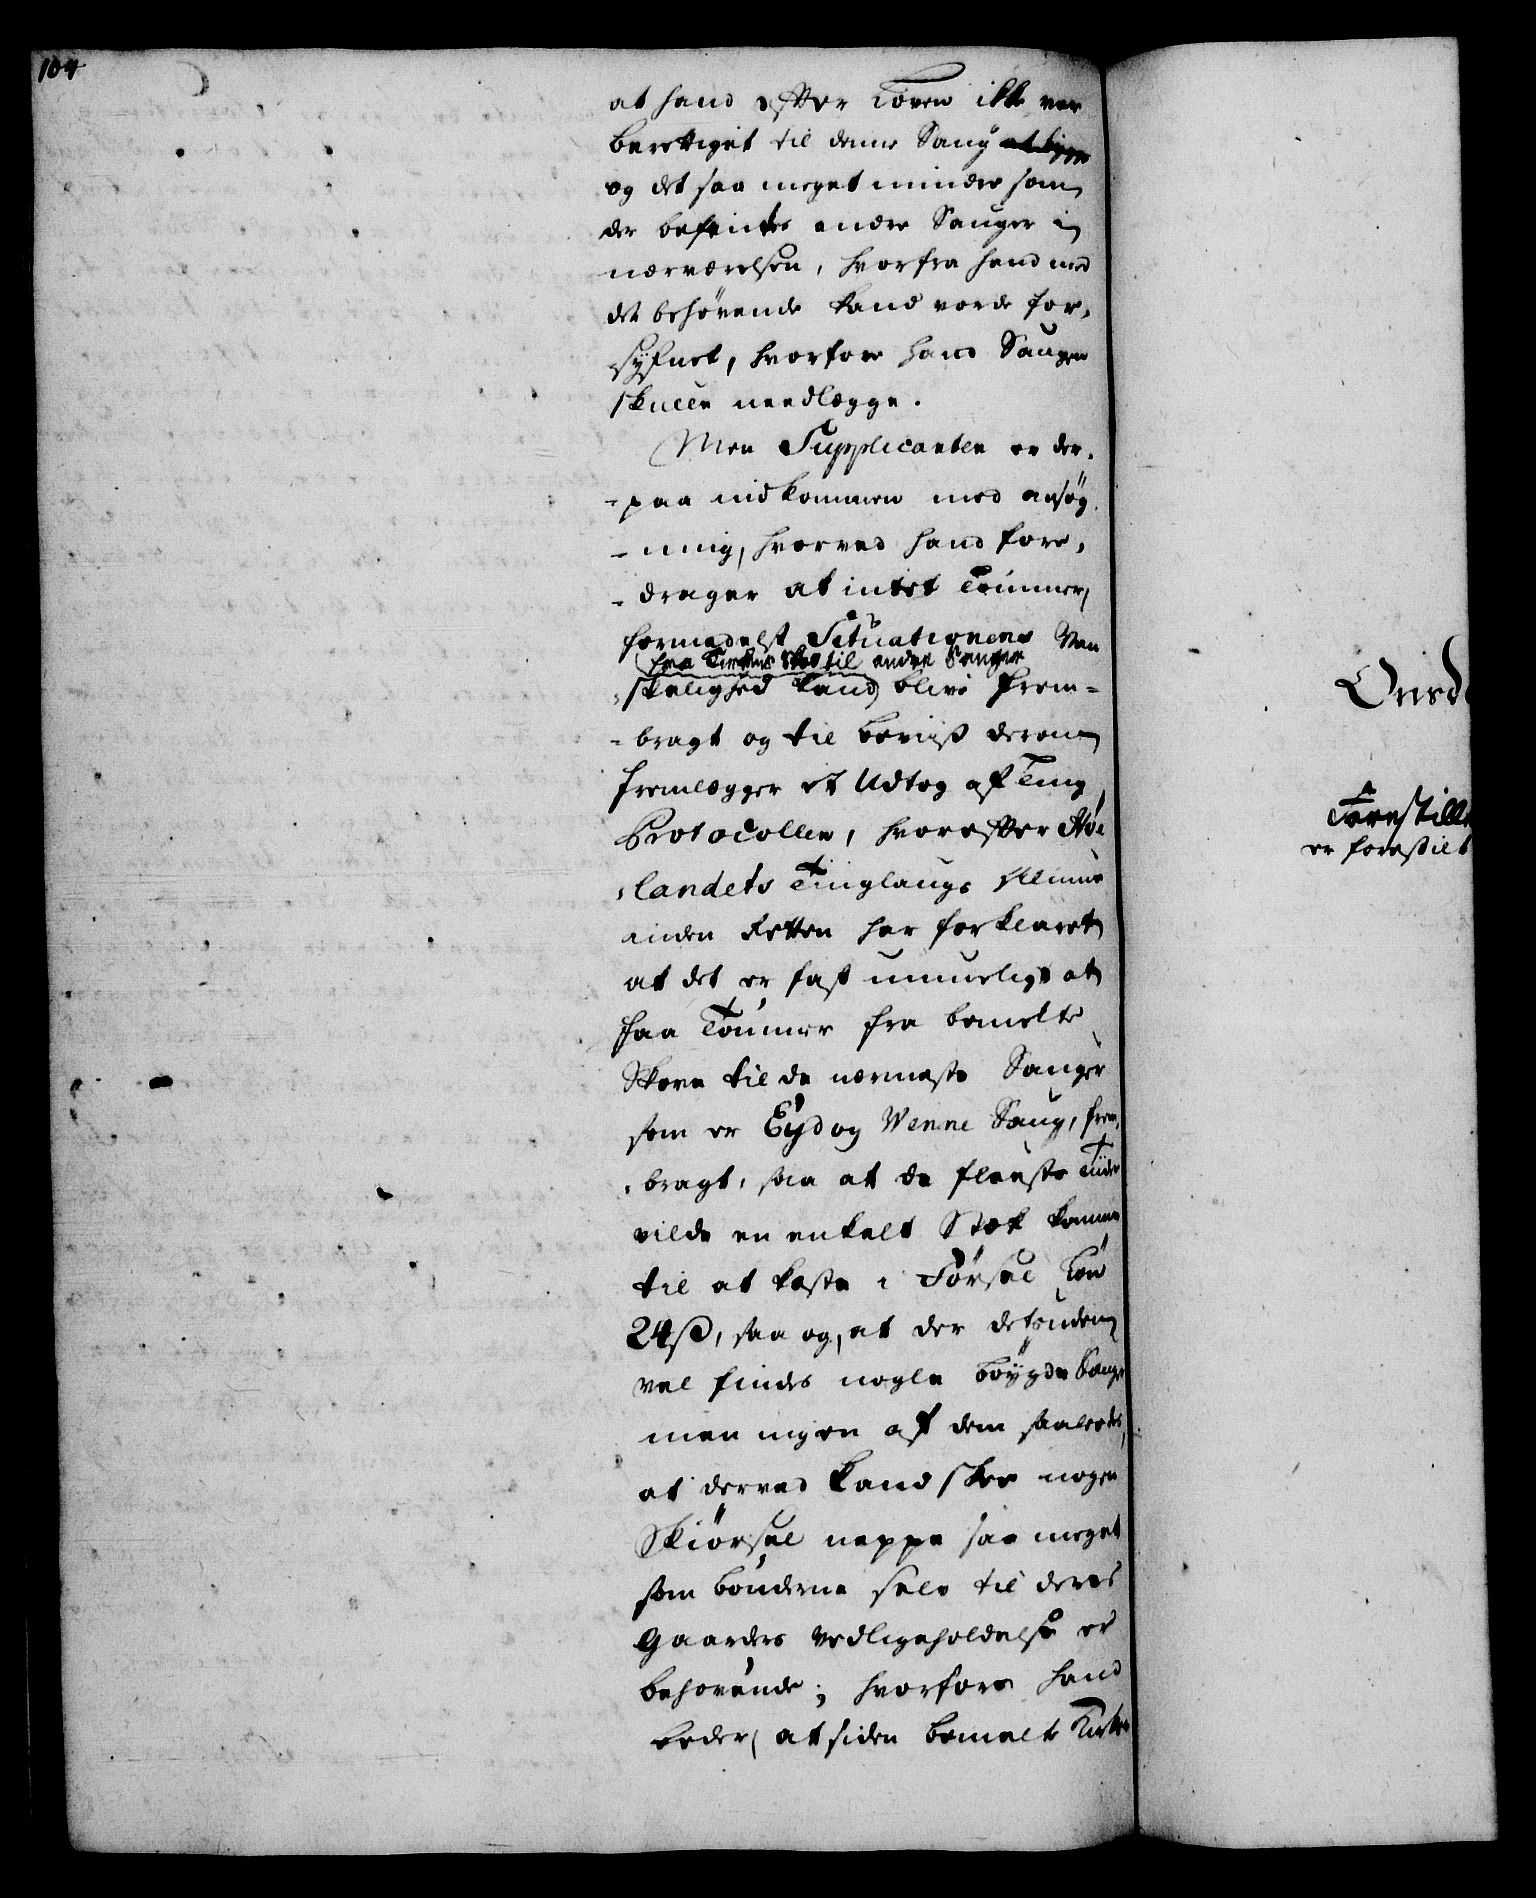 104
at hand efter Loven ikke var
berettiget til denne Saug
og det saa meget mindre som
der befindes andre Sauger i
nærværelsen, hvorfra hand med
det behøvende kand vorde for-
sÿfnet, hvorfore hand Saugen
skulle needlegge.
Men Supplicanten er der-
-paa indkommen med ansøg-
-ning, hvorved hand fore-
-drager at intet Tømmer,
formedelst Situationens Van
fra Kirkens Skov til andre Sauger
-skelighed kand blive frem-
-bragt og til beviiß derom
fremlegger et Udtog af Ting
Protocollen, hvorefter Høe
-landets Tinglaugs Almue
inden Retten har forklaret
at det er fast umueligt at
faa Tømmer fra bemelte
Skove til de nærmeste Sauger
som er Eÿd og Wenne Saug, frem-
-bragt, saa at de fleeste Tiider
vilde en enkelt Stok komme
til at koste i Førsel Løn
24ß, saa og, at der desuden
vel findes nogle bøÿgde Sauge
men ingen af dem saaledes,
at derved kand skee nogen
Skiørsel neppe saa meget
som bønderne selv til deres
Gaarders vedligeholdelse er
behøvende; hvorfore hand
beder, at siden bemelte Kirke
Onsd
Forestille
er forestilt